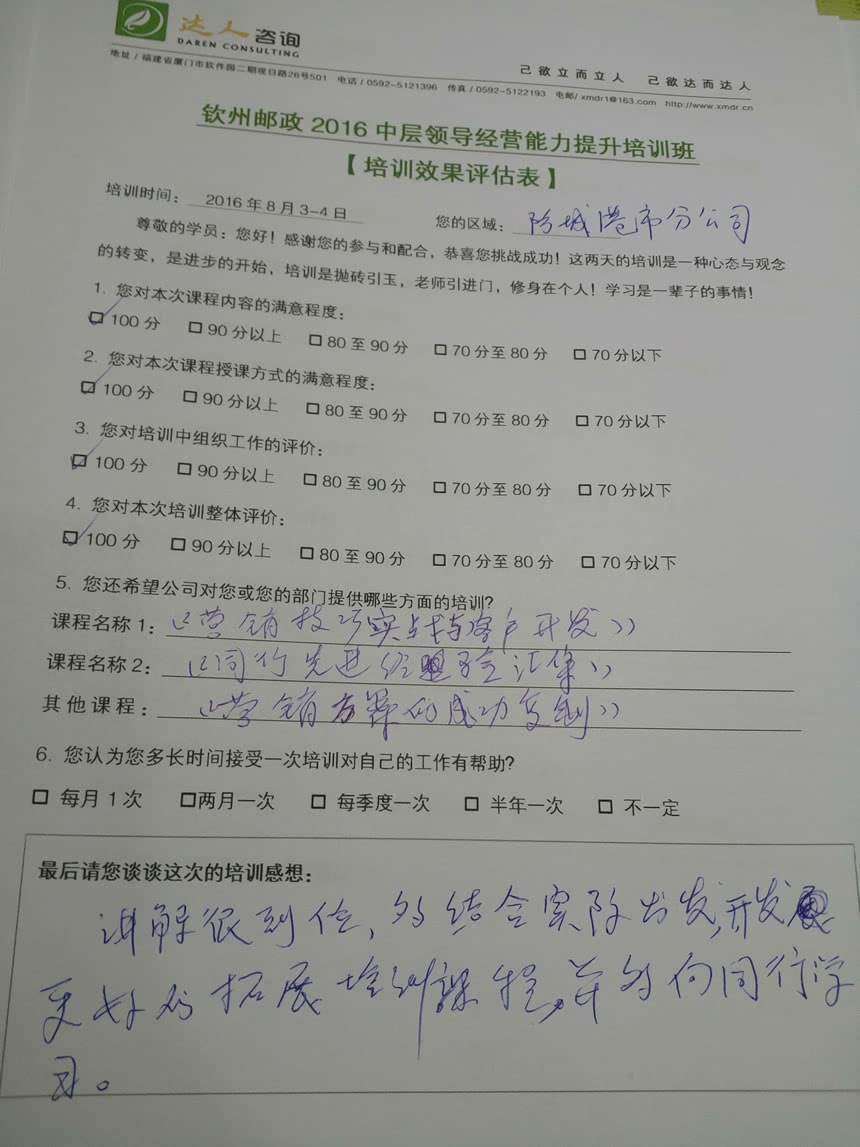 达人咨询
DAREN CONSULTING
己欲立而立人 己欲达而达人
地址/福建省厦门市软件园二期观日路26号501 电话/0592-5121396 传真/0592-5122193 电邮/xmdr1@163.com http://www.xmdr.cn
钦州邮政2016中层领导经营能力提升培训班
【培训效果评估表】
培训时间: 2016年8月3-4日 您的区域: 防城港市分公司
尊敬的学员:您好!感谢您的参与和配合,恭喜您挑战成功!这两天的培训是一种心态与观念
的转变,是进步的开始,培训是抛砖引玉,老师引进门,修身在个人!学习是一辈子的事情!
1. 您对本次课程内容的满意程度:
☑100分 □90分以上 □80至90分 □70分至80分 □70分以下
2. 您对本次课程授课方式的满意程度:
☑100分 □90分以上 □80至90分 □70分至80分 □70分以下
3. 您对培训中组织工作的评价:
☑100分 □90分以上 □80至90分 □70分至80分 □70分以下
4. 您对本次培训整体评价:
☑100分 □90分以上 □80至90分 □70分至80分 □70分以下
5. 您还希望公司对您或您的部门提供哪些方面的培训?
课程名称1: 《营销技巧实战与客户开发》
课程名称2: 《同行先进经验汇集》
其他课程: 《营销方案的成功复制》
6. 您认为您多长时间接受一次培训对自己的工作有帮助?
□ 每月1次 □两月一次 □ 每季度一次 □ 半年一次 □ 不一定
最后请您谈谈这次的培训感想:
讲解很到位,多结合实际出发,开发
更好的拓展培训课程,并多向同行学
习。